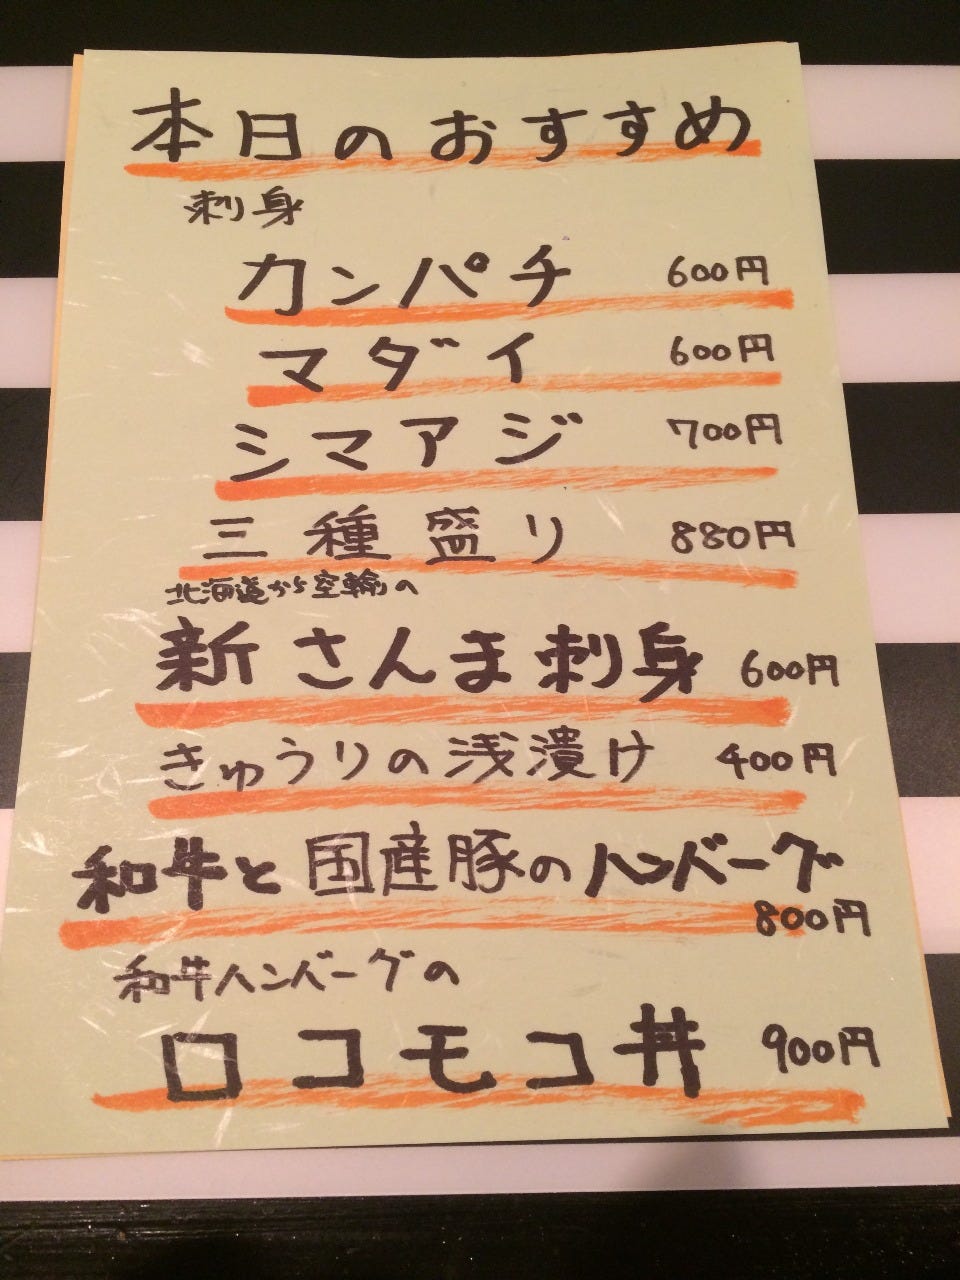 本日のおすすめ
刺身
カンパチ 600円
マダイ 600円
シマアジ 700円
三種盛り 880円
北海道から空輸の
新さんま刺身 600円
きゅうりの浅漬け 400円
和牛と国産豚のハンバーグ
800円
和牛ハンバーグの
ロコモコ丼 900円